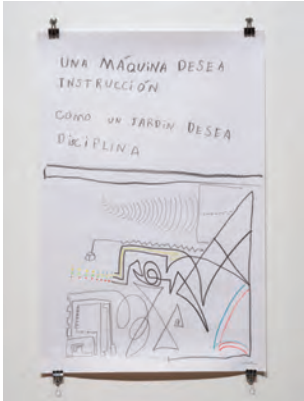 UNA MÁQUINA DESEA
INSTRUCCIÓN
COMO UN JARDÍN DESEA
DISCIPLINA